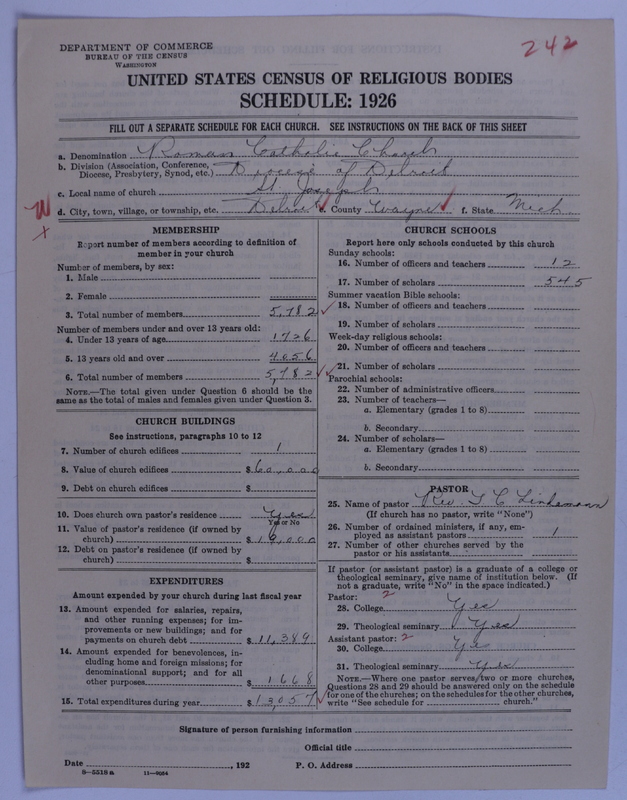 DEPARTMENT OF COMMERCE
BUREAU OF THE CENSUS
WASHINGTON
242
UNITED STATES CENSUS OF RELIGIOUS BODIES
SCHEDULE: 1926
FILL OUT A SEPARATE SCHEDULE FOR EACH CHURCH. SEE INSTRUCTIONS ON THE BACK OF THIS SHEET
a. Denomination Roman Catholic Church
b. Division (Association, Conference, Diocese, Presbytery, Synod, etc.) Diocese of Detroit
c. Local name of church St. Joseph
d. City, town, village, or township, etc. Detroit e. County Wayne f. State Mich.
W
x
MEMBERSHIP
Report number of members according to definition of
member in your church
Number of members, by sex:
1. Male
2. Female
3. Total number of members 5,782
Number of members under and over 13 years old:
4. Under 13 years of age 1726
5. 13 years old and over 4056
6. Total number of members 5,782
NOTE.—The total given under Question 6 should be the
same as the total of males and females given under Question 3.
CHURCH BUILDINGS
See instructions, paragraphs 10 to 12
7. Number of church edifices 1
8. Value of church edifices $60,000
9. Debt on church edifices $
10. Does church own pastor's residence Yes
Yes or No
11. Value of pastor's residence (if owned by
church) $
12. Debt on pastor's residence (if owned by
church) $
EXPENDITURES
Amount expended by your church during last fiscal year
13. Amount expended for salaries, repairs,
and other running expenses; for im-
provements or new buildings; and for
payments on church debt $11,389
14. Amount expended for benevolences, in-
cluding home and foreign missions; for
denominational support; and for all
other purposes $1668
15. Total expenditures during year $13,057
CHURCH SCHOOLS
Report here only schools conducted by this church
Sunday schools:
16. Number of officers and teachers 12
17. Number of scholars 545
Summer vacation Bible schools:
18. Number of officers and teachers
19. Number of scholars
Week-day religious schools:
20. Number of officers and teachers
21. Number of scholars
Parochial schools:
22. Number of administrative officers
23. Number of teachers—
a. Elementary (grades 1 to 8)
b. Secondary
24. Number of scholars—
a. Elementary (grades 1 to 8)
b. Secondary
PASTOR
25. Name of pastor Rev. T C Linkemann
(If church has no pastor, write "None")
26. Number of ordained ministers, if any, em-
ployed as assistant pastors 1
27. Number of other churches served by the
pastor or his assistants
If pastor (or assistant pastor) is a graduate of a college or
theological seminary, give name of institution below. (If
not a graduate, write "No" in the space indicated.)
Pastor: 2
28. College Yes
29. Theological seminary Yes
Assistant pastor: 2
30. College Ye
31. Theological seminary Yes
NOTE.—Where one pastor serves two or more churches,
Questions 28 and 29 should be answered only on the schedule
for one of the churches; on the schedules for the other churches,
write "See schedule for church."
Signature of person furnishing information
Official title
Date , 192 P. O. Address
8—5518 a 11—9064